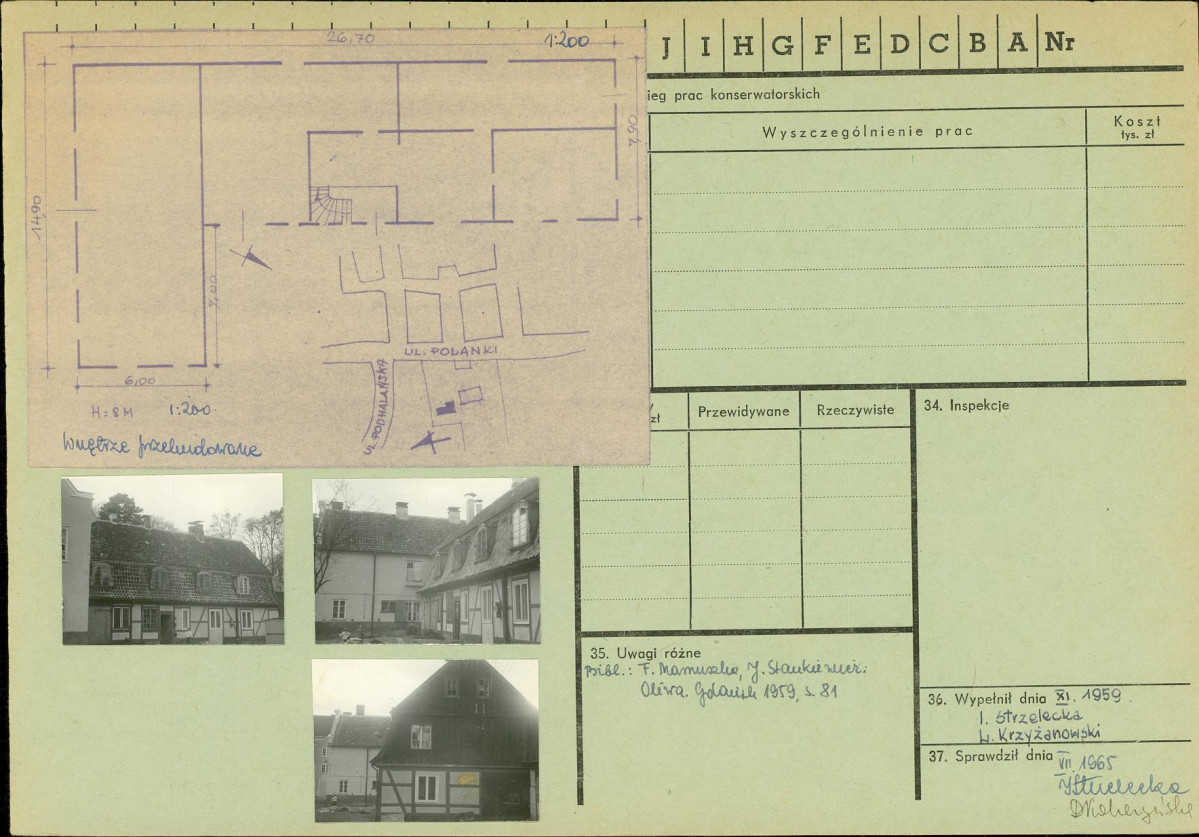 26,70
1:200
7,90
14,90
7,00
6,00
H=8M 1:200
Wnętrze przebudowane
UL. POLANKI
UL. PODHALAŃSKA
J I H G F E D C B A Nr
ieg prac konserwatorskich
Wyszczególnienie prac
Koszt
tys. zł
zł
Przewidywane
Rzeczywiste
34. Inspekcje
35. Uwagi różne
Bibl.: F. Mamuszka, J. Stankiewicz:
Oliwa. Gdańsk 1959, s. 81
36. Wypełnił dnia XI. 1959
I. Strzelecka
L. Krzyżanowski
37. Sprawdził dnia VII. 1965
IStrzelecka